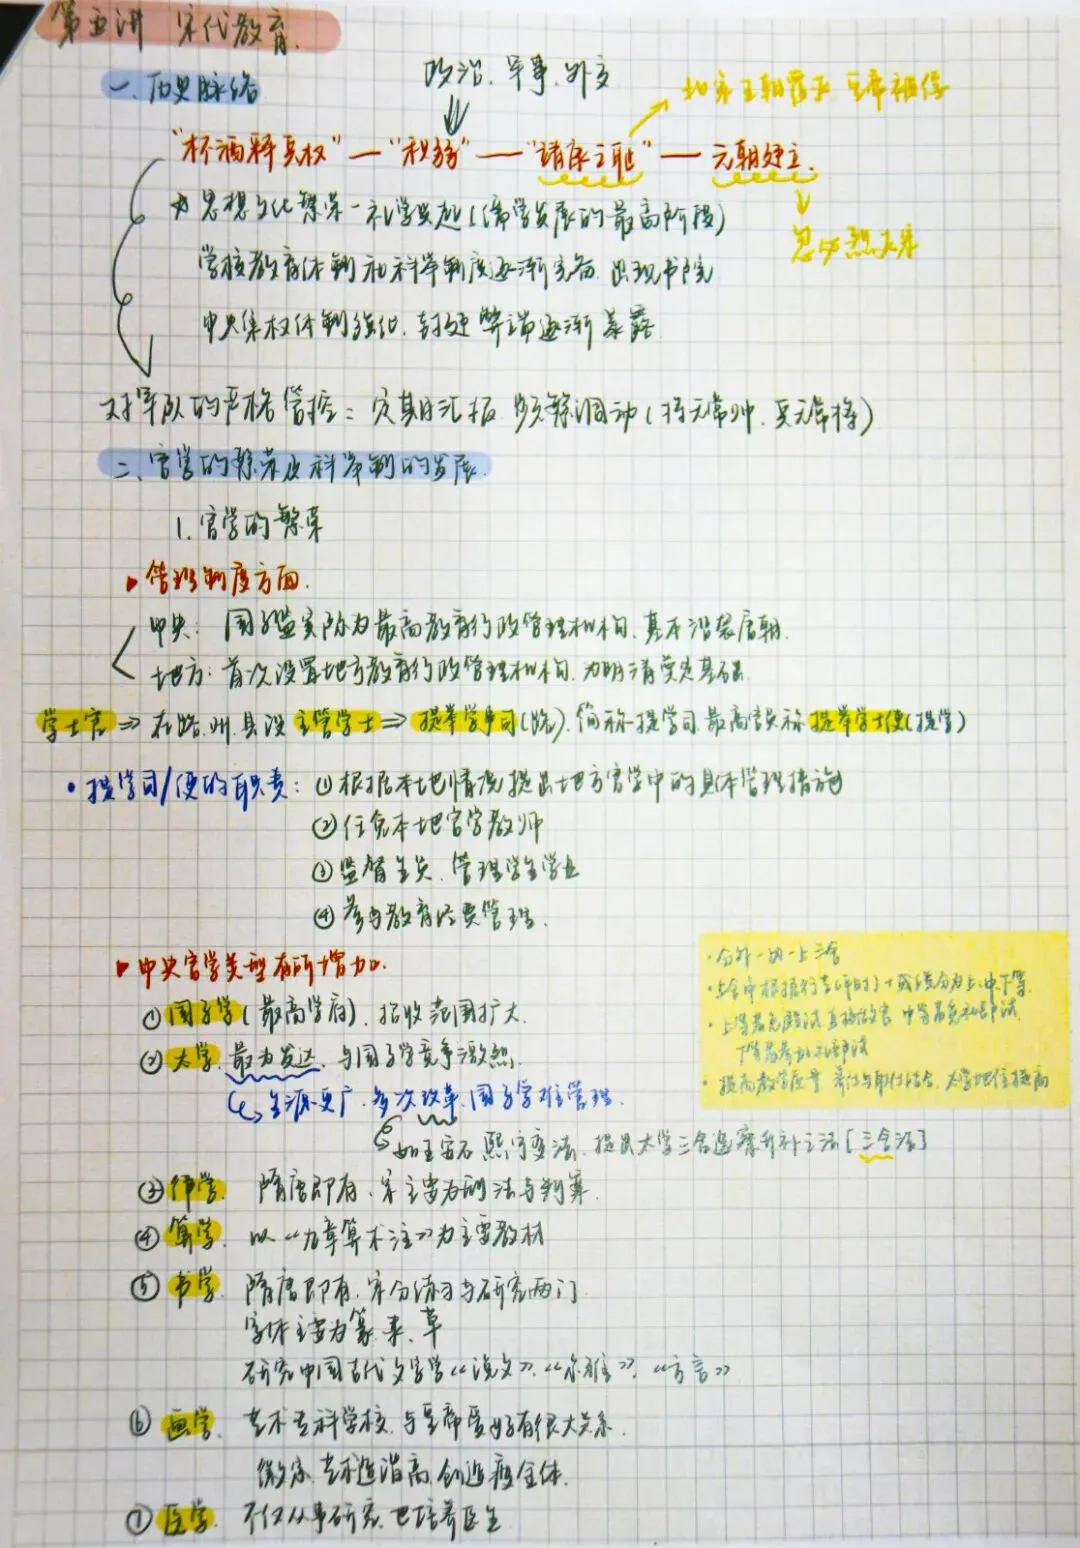 第五讲 宋代教育.
一.历史脉络
政治.军事.外交
北宋王朝覆灭 皇帝被俘
"杯酒释兵权"—"积弱"—"靖康之耻"—元朝建立.
思想文化繁荣-礼学兴起(儒学发展的最高阶段)
忽必烈灭宋
学校教育体制和科举制度逐渐完备.出现书院
中央集权体制强化.封建弊端逐渐暴露
对军队的严格管控:定期汇报 频繁调动(将无常帅.兵无常将)
二.官学的繁荣及科举制的发展.
1.官学的繁荣
管理制度方面.
中央:国子监实际为最高教育行政管理机构.基本沿袭唐朝.
地方:首次设置地方教育行政管理机构.为明清奠定基础
学士官⇒在路.州.县设主管学士⇒提举学事司(路).简称提学司.最高官员称提举学士使(提学)
·提学司/使的职责:①根据本地情况提出地方官学中的具体管理措施
②任免本地官学教师
③监督生员.管理学生学业
④参与教育经费管理.
中央官学类型有所增加.
①国子学(最高学府).招收范围扩大.
②太学.最为发达.与国子学竞争激烈.
生源更广.多次改革.国子学难管理.
如王安石熙宁变法.提出太学三舍选察升补之法[三舍法]
·分外-内-上三舍
·上舍中根据行艺(平时)+成绩分为上.中.下等.
·上等者免殿试直接做官 中等者免礼部试.
下等者参加礼部试
·提高教学质量 养仕与取仕结合.太学地位提高
③律学.隋唐即有.宋主要为刑法与判案.
④算学.以《九章算术注》为主要教材
⑤书学.隋唐即有.宋分练习与研究两门
字体主要为篆.隶.草
研究中国古代文字学《说文》.《尔雅》.《方言》
⑥画学.艺术专科学校.与皇帝爱好有很大关系.
徽宗.艺术造诣高.创造瘦金体.
⑦医学.不仅从事研究.也培养医生